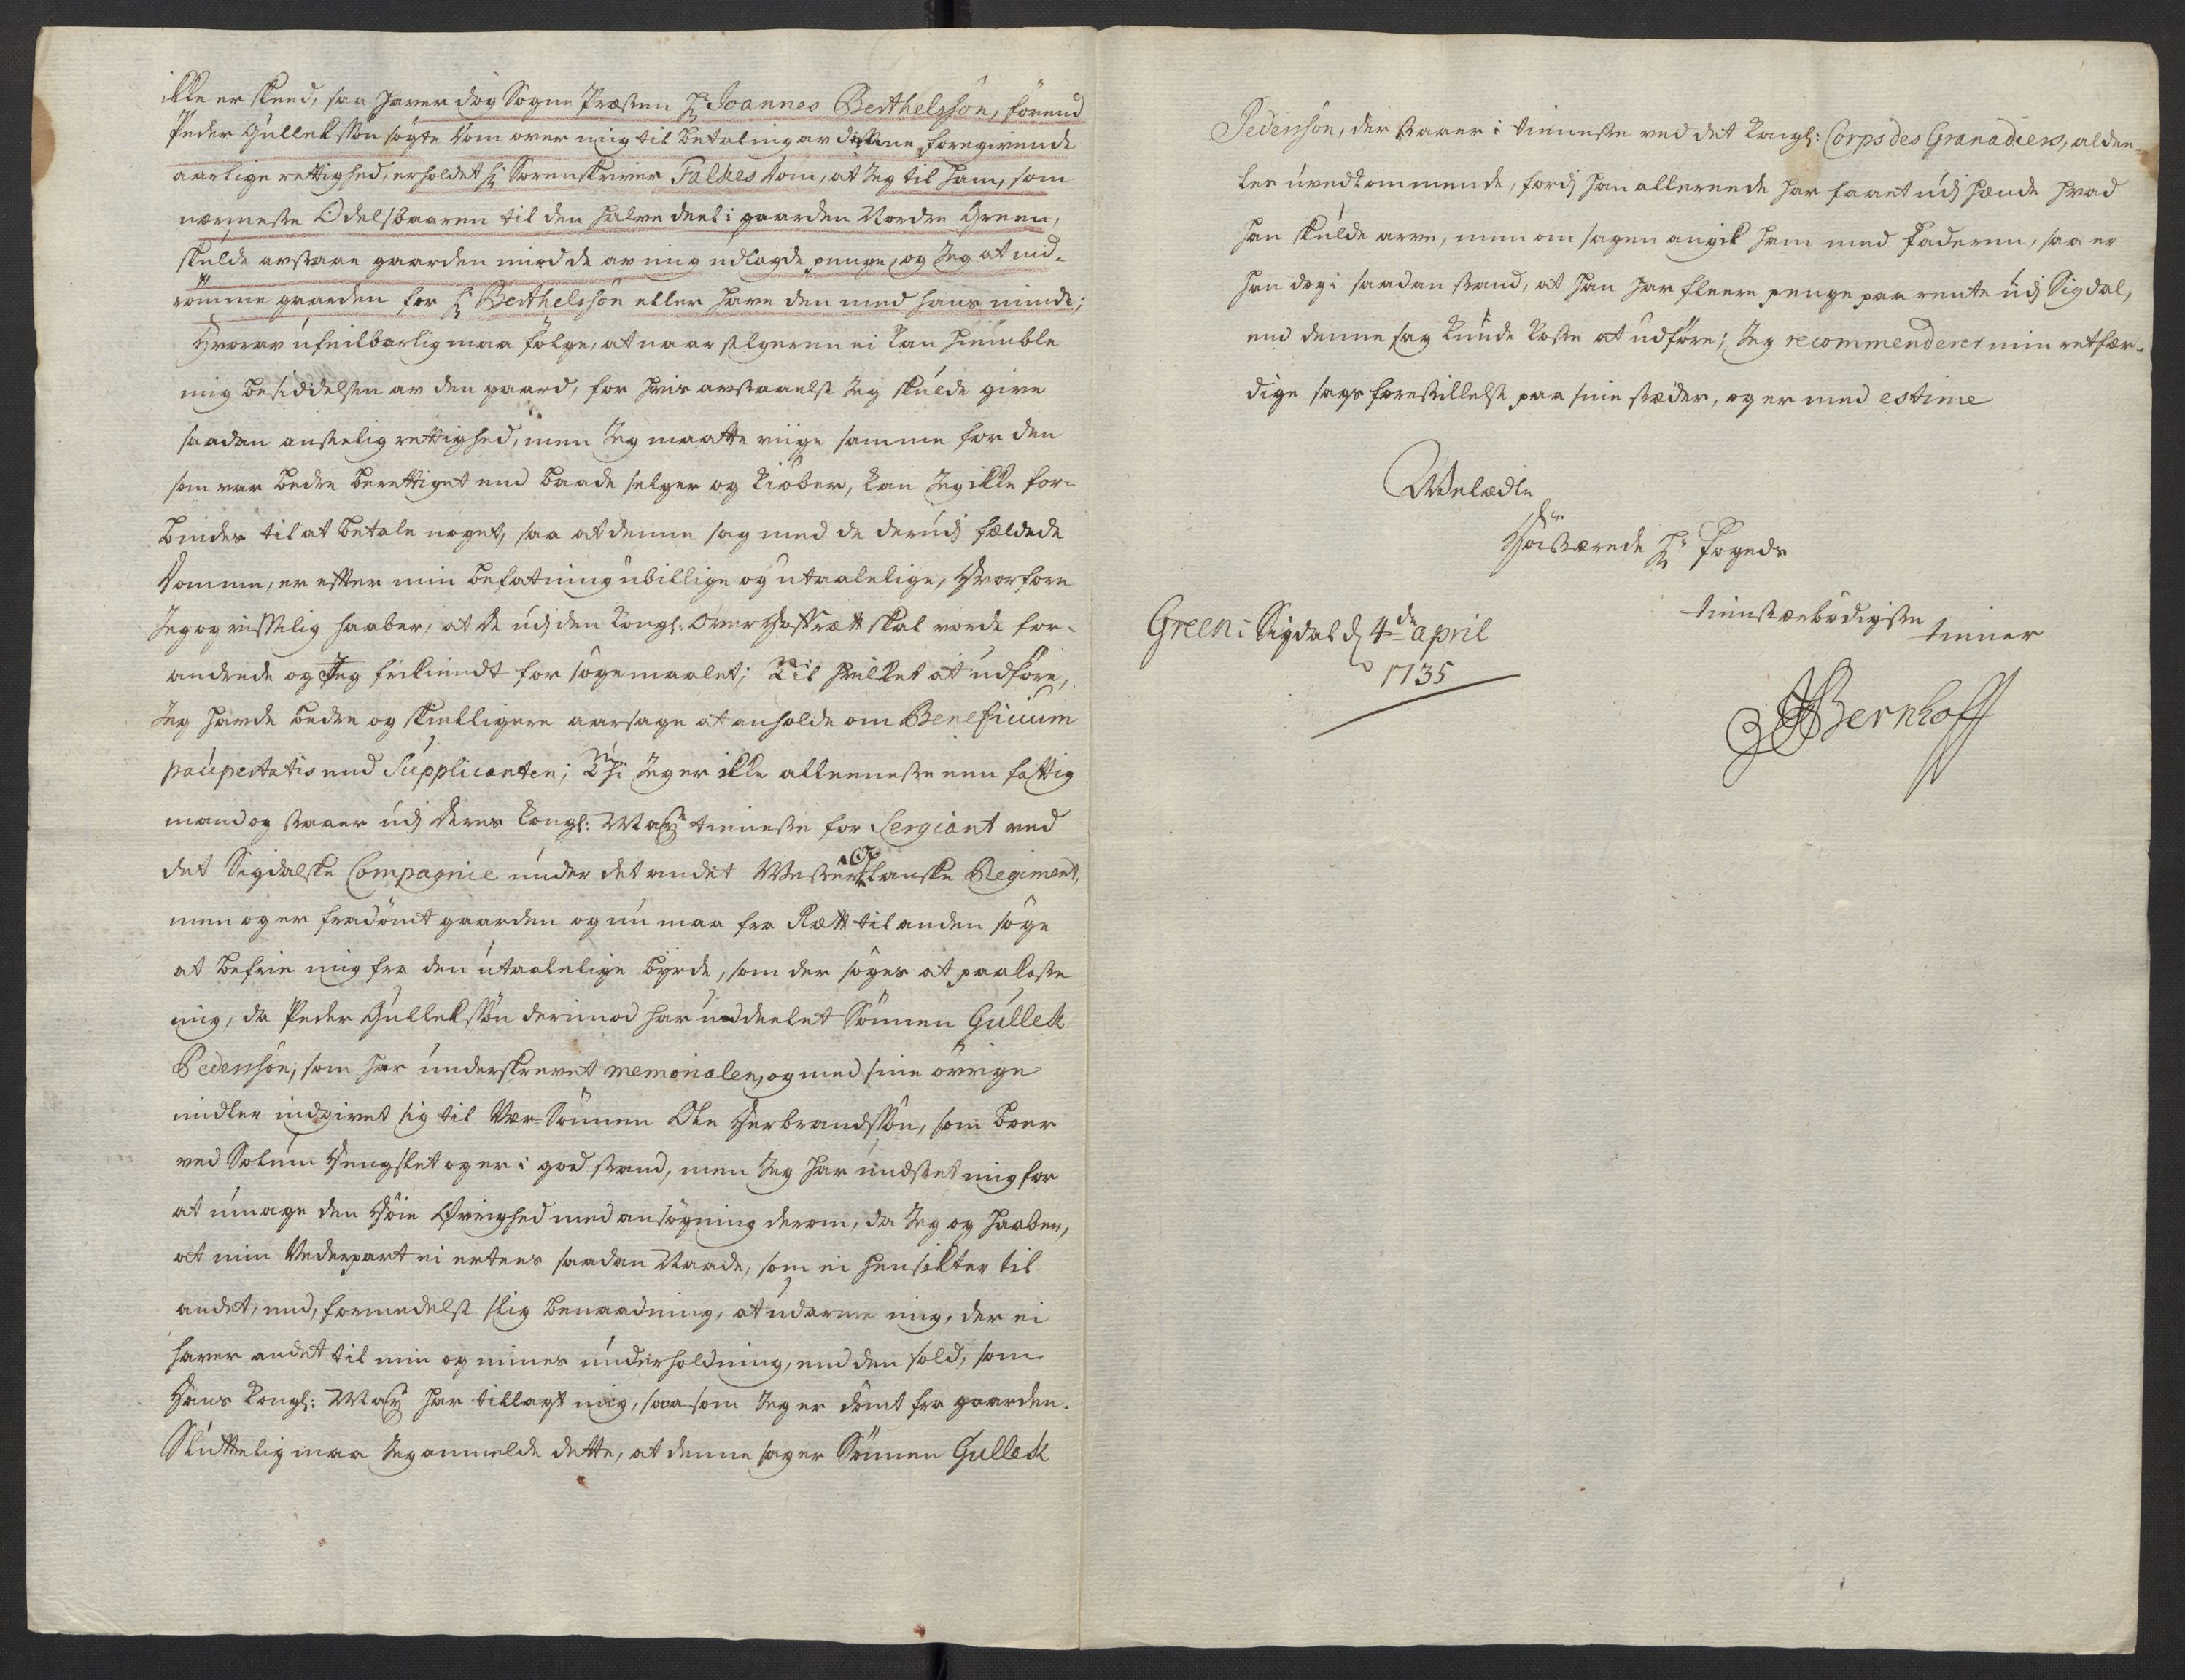 ikke er skeed, saa haver dog Sogne Præsten Hr Joannes Berthelssön, förend
Peder Gulleksson sögte Dom over mig til betaling av disse foregivende
aarlige rettighed, erholdet Hr Sorenskriver Falches Dom, at Jeg til ham, som
nærmeste Odelsbaaren til den halve deel i gaarden Nordre Green,
skulde avstaae gaarden mod de av mig udlagde penge, og Jeg at und-
römme gaarden for Hr Berthelssön eller have den med hans minde;
Hvorav úfeilbarlig maa fölge, at naar selgeren ei kan hiemble
mig besiddelsen av den gaard, for hvis avstaaelse Jeg skulde give
saadan anseelig rettighed, men Jeg maatte viige samme for den
som var bedre berettiget end baade selger og kiöber, kan Jeg ikke for-
bindes til at betale noget, saa at denne sag med de derudj fældede
Domme, er efter min befatning ubillige og utaalelige, Hvorfore
Jeg og visselig haaber, at de udj den Kongl: Over Hoffrætt skal vorde for-
andrede og Jeg frikiendt for sögemaalet; Til hvilket at udföre,
Jeg havde bedre og skiælligere aarsage at anholde om Beneficium
paupertatis end Supplicanten; Thi Jeg er ikke alleeneste een fattig
mand og staaer udj Deres Kongl: Mayts tieneste for Sergiant ved
det Sigdalske Compagnie under det andet Vesterlenske Regiment,
men og er fradömt gaarden og nu maa fra Rætt til anden söge
at befrie mig fra den utaalelige byrde, som der söges at paalaste
mig, da Peder Gullekssön derimod har uddeelet Sönnen Gullek
Pederssön, som har underskrevet memorialen, og med sine övrige
midler indgivet sig til Vær-Sönnen Ole Herbrandssön, som boer
ved Solum Hengslet og er i god stand, men Jeg har undseet mig for
at umage den Höie Øvrighed med ansögning derom, da Jeg og haaber,
at min Vederpart ei ertees saadan Naade, som ei hensikter til
andet, end, formedelst slig benaadning, at udarme mig, der ei
haver andet til min og mines underholdning, end den sold, som
Hans Kongl: Mayt har tillagt mig, saasom Jeg er dömt fra gaarden.
Sluttelig maa Jeg anmelde dette, at denne sag er Sönnen Gullek
Pederssön, der staaer i tieneste ved det Kongl: Corps des Granadiers, aldee-
les uvedkommende, fordj han allereede har faaet udj hænde hvad
han skulde arve, men om sagen angik ham med Faderen, saa er
han dog i saadan stand, at han har fleere penge paa rente udj Sigdal,
end denne sag kunde koste at udföre; Jeg recommenderer min retfær-
dige sags forestillelse paa sine stæder, og er med estime
Velædle
Höistærede Hr Fogeds
Green i Sigdal d 4de april
1735
tienstærbödigste
tienner
Bernhoff